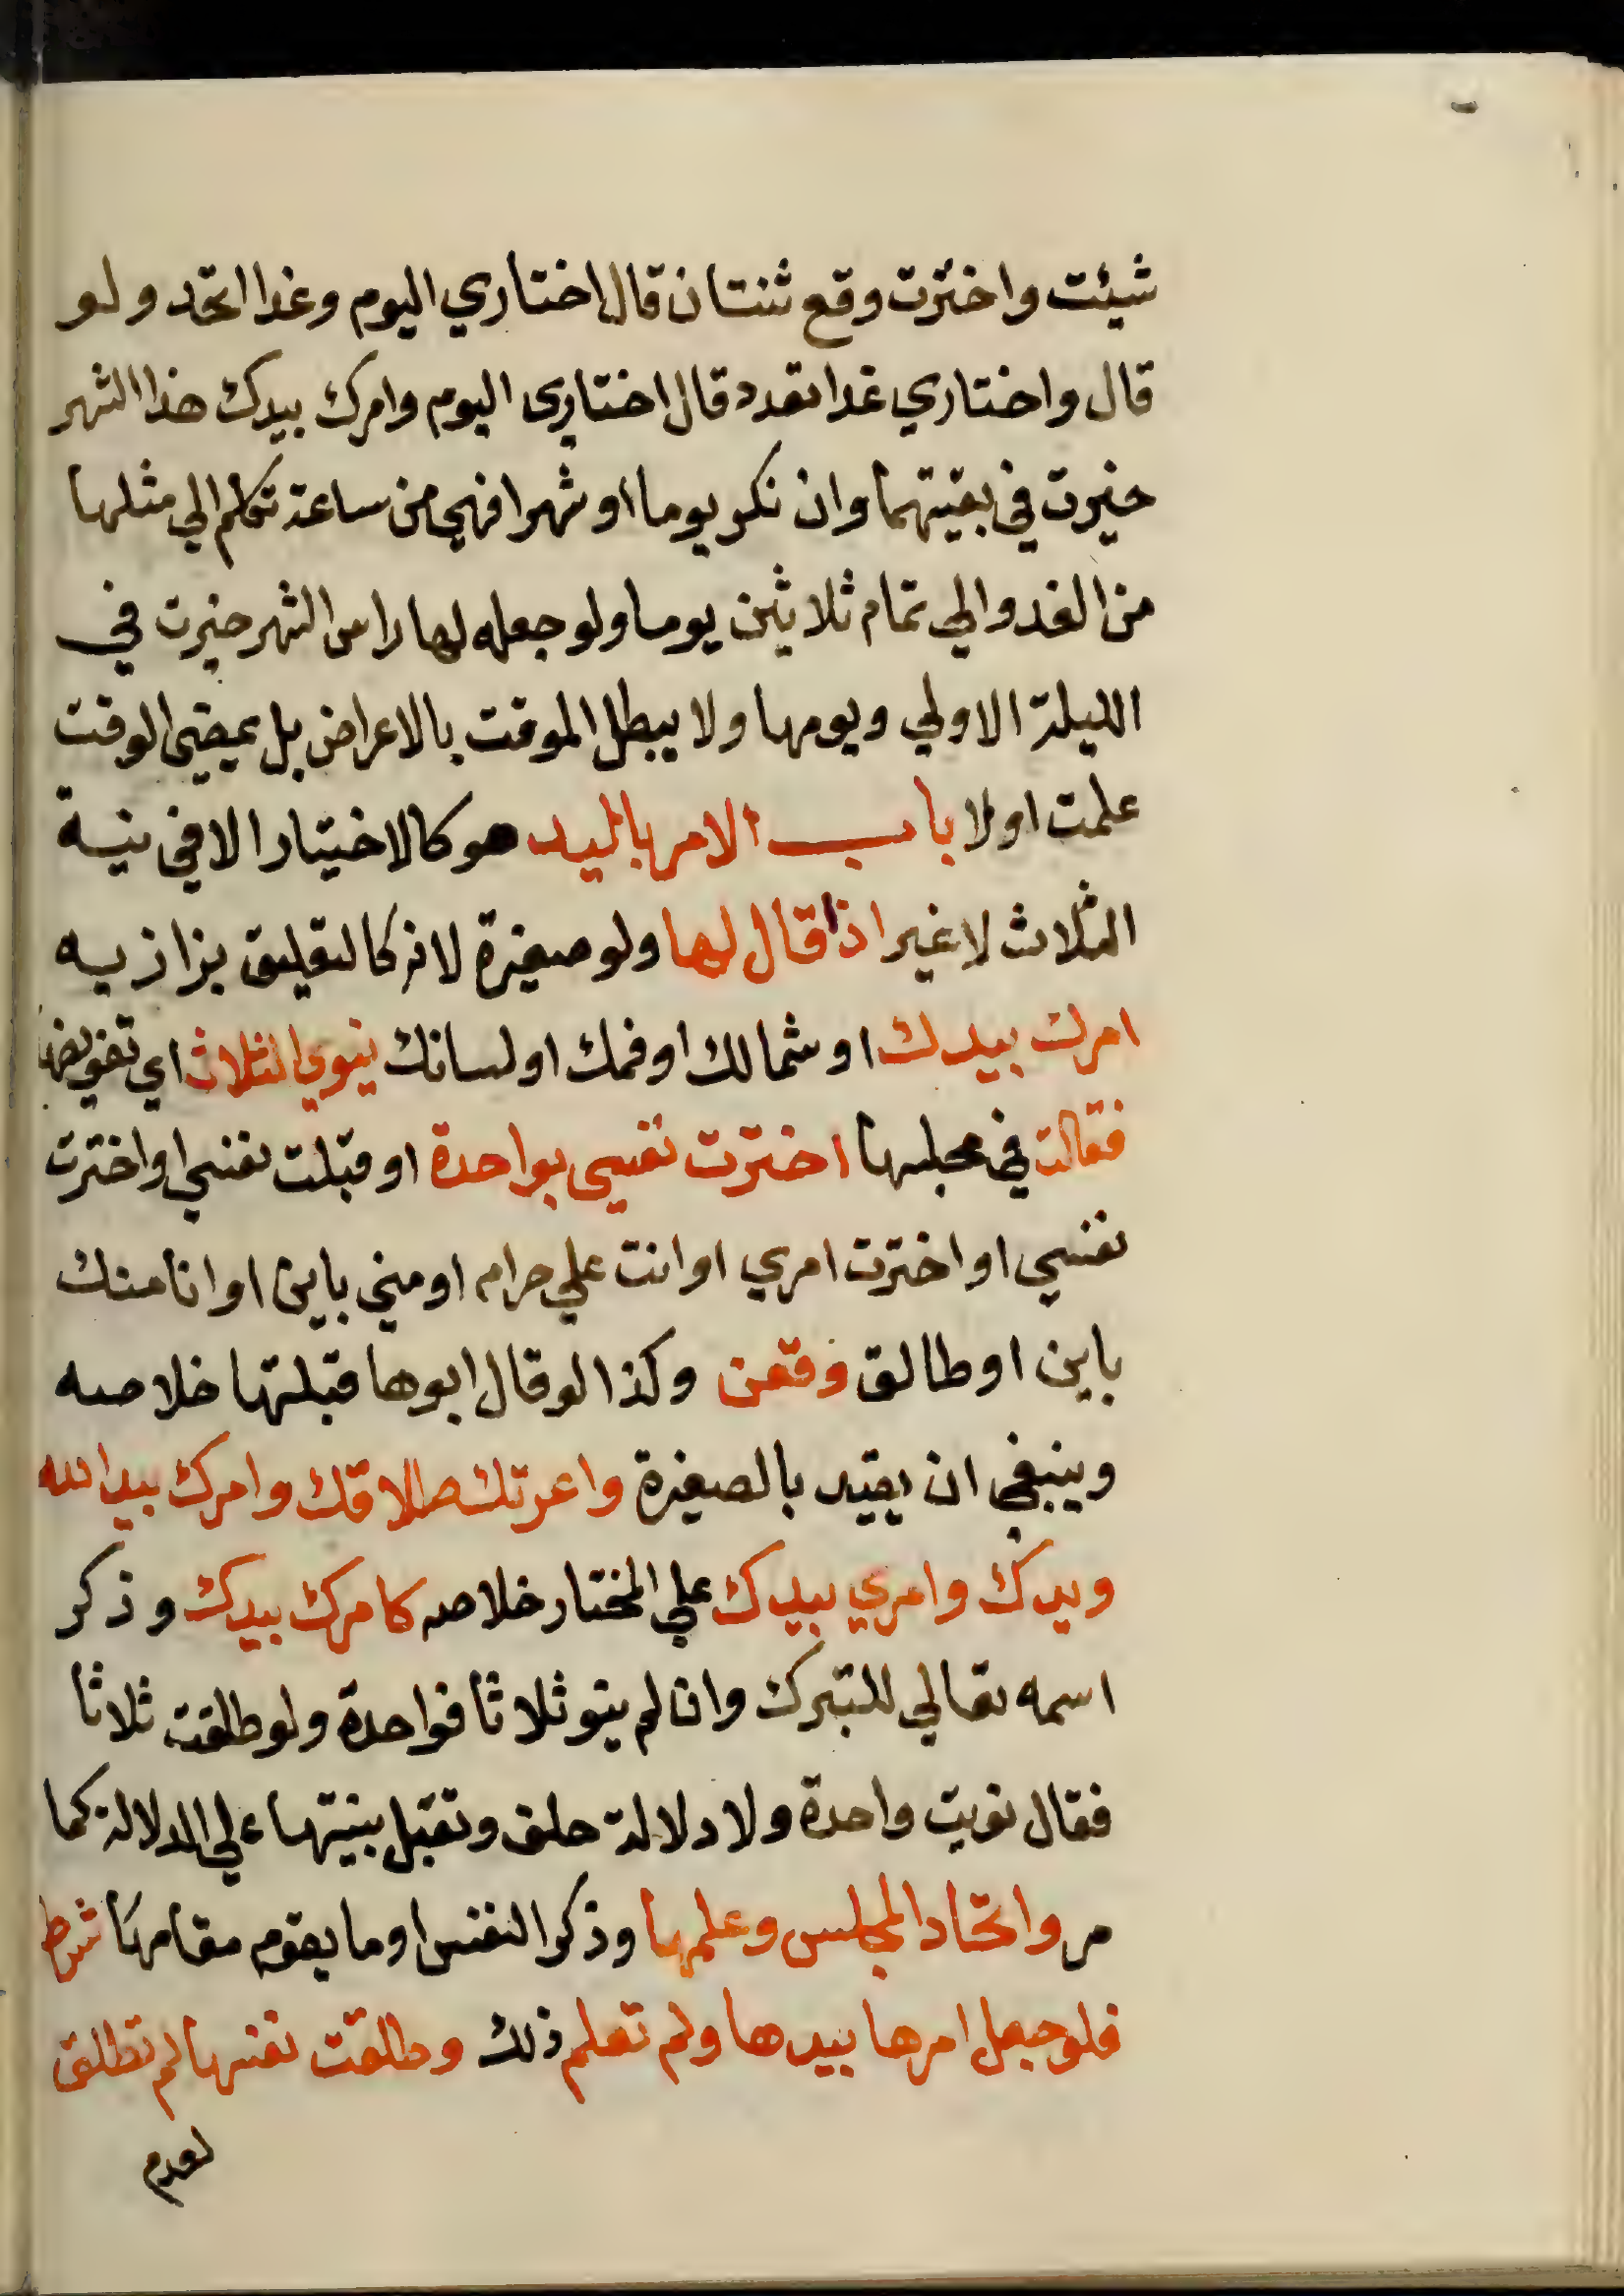 شيئت واخترت وقع ثنتان قال اختاري اليوم وغدا اتحد ولو
قال واختاري غدا تعدد قال اختاري اليوم وامرك بيدك هذا الشهر
خيرت في بقيتهما وان نكر يوما او شهرا فهي من ساعة تكلم الي مثلها
من الغد والي تمام ثلاثين يوما ولو جعله لها راس الشهر خيرت في
الليلة الاولي ويومها ولا يبطل الموقت بالاعراض بل بمضي الوقت
علمت اولا باب الامر باليد هو كالاختيار الا في نية
الثلاث لا غير اذا قال لها ولو صغيرة لانه كالتعليق بزازيه
امرك بيدك او شمالك او فمك او لسانك ينوي الثلاث اي تفويضها
فقالت في مجلسها اخترت نفسي بواحدة او قبلت نفسي او اخترت
نفسي او اخترت امري او انت علي حرام او مني باين او انا منك
باين او طالق وقعن وكذا لو قال ابوها قبلتها خلاصه
وينبغي ان يقيد بالصغيرة واعرتك طلاقك وامرك بيد الله
ويدك وامري بيدك علي المختار خلاصه كامرك بيدك وذكر
اسمه تعالي للتبرك وان لم ينو ثلاثا فواحدة ولو طلقت ثلاثا
فقال نويت واحدة ولا دلالة حلف وتقبل بينتها علي الدلالة كما
مر واتحاد المجلس وعلمها وذكر النفس او ما يقوم مقامها شرط
فلو جعل امرها بيدها ولم تعلم ذلك وطلقت نفسها لم تطلق
لعدم